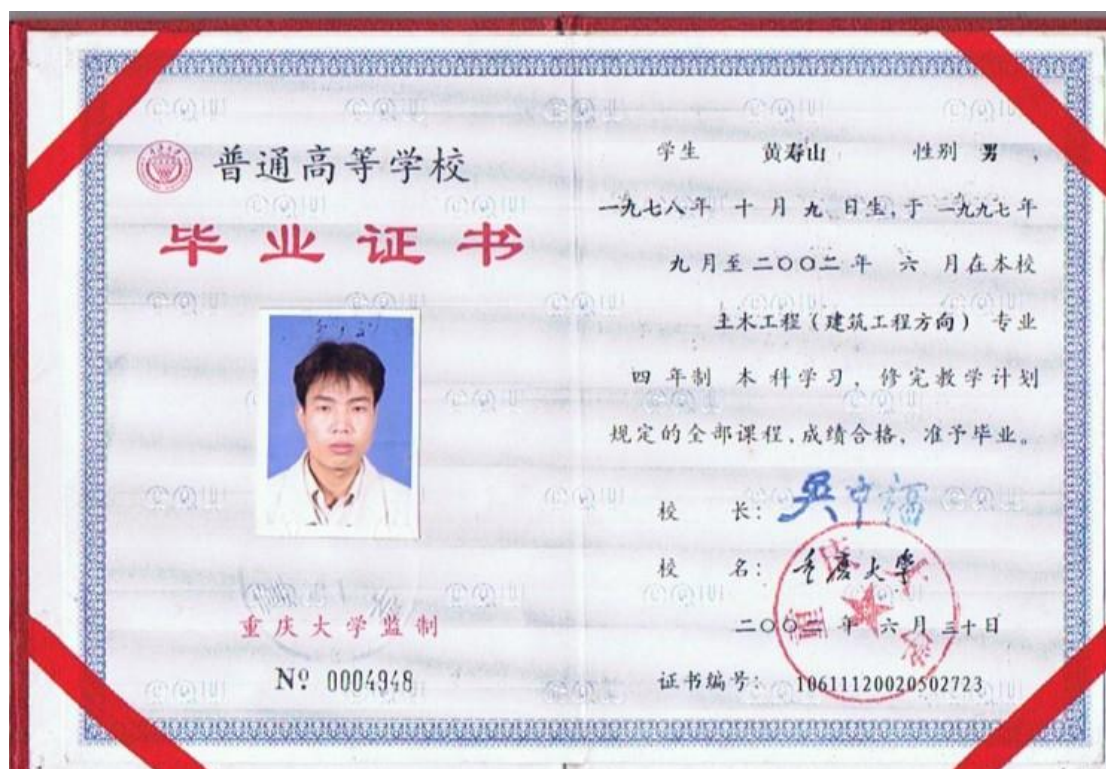 普通高等学校
毕业证书
重庆大学监制
№ 0004948
学生 黄寿山 性别 男 ,
一九七八年 十月 九 日生,于 一九九七年
九月至二〇〇二年 六 月在本校
土木工程(建筑工程方向) 专业
四 年制 本 科学习, 修完教学计划
规定的全部课程,成绩合格, 准予毕业。
校 长: 吴中福
校 名: 重庆大学
二〇〇二年 六月三十日
证书编号: 10611120020502723